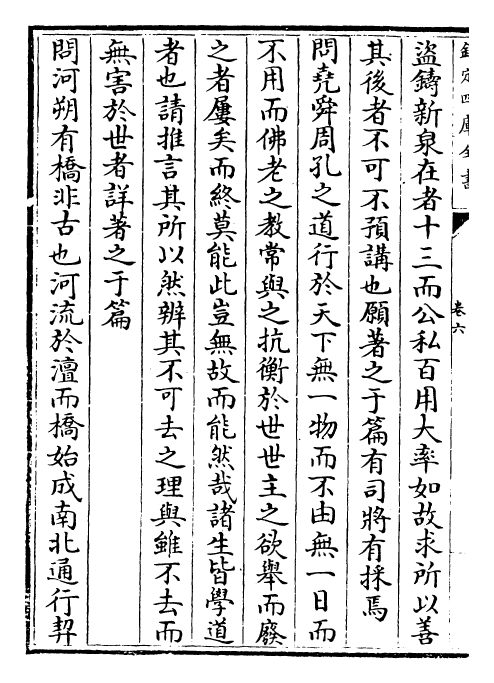 欽定四庫全書
卷六
盜鑄新泉在者十三而公私百用大率如故求所以善
其後者不可不預講也願著之于篇有司將有採焉
問堯舜周孔之道行於天下無一物而不由無一日而
不用而佛老之教常與之抗衡於世世主之欲舉而廢
之者屢矣而終莫能此豈無故而能然哉諸生皆學道
者也請推言其所以然辨其不可去之理與雖不去而
無害於世者詳著之于篇
問河朔有橋非古也河流於澶而橋始成南北通行契